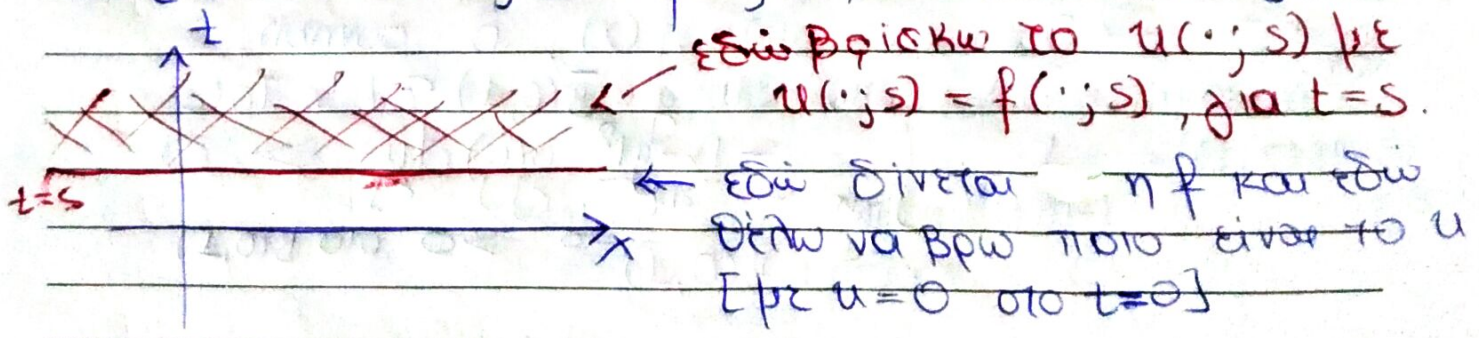 t
εδώ βρίσκω το u(·;s) με
u(·;s) = f(·;s), για t=s.
t=s
← εδώ δίνεται η f και εδώ
x
θέλω να βρω ποιο είναι το u
[με u=0 στο t=0]